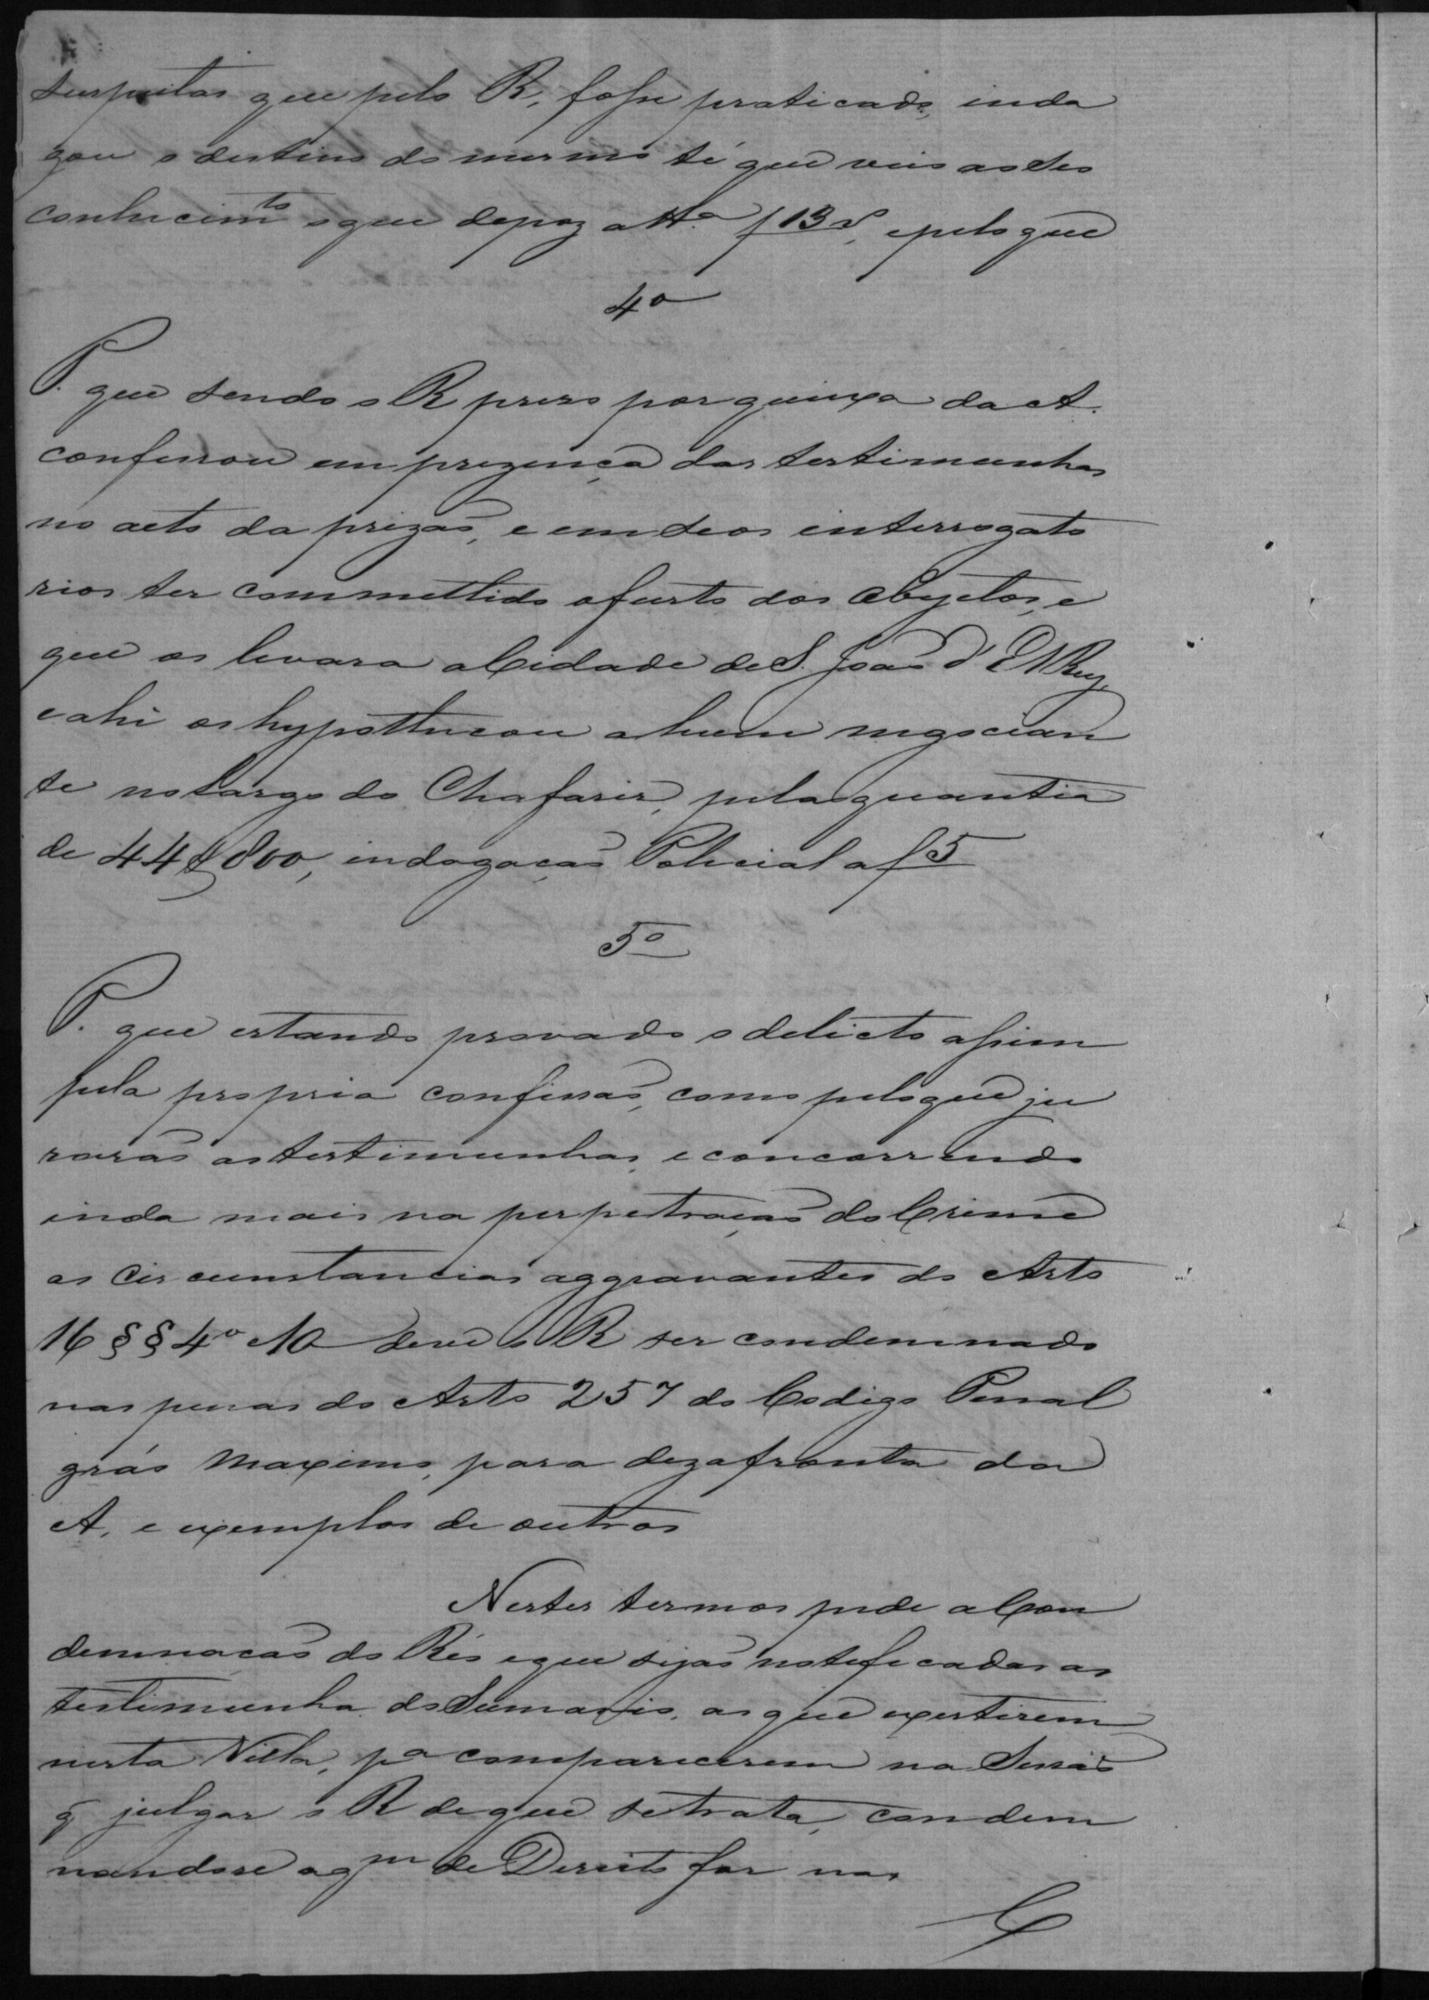 suspeitas que pelo R, fosse praticado, inda
gou o destino do mesmo té que veio ao seo
conhecimto o que depoz a tta f 13 v, e pelo que
4º
P. que sendo o R prezo por queixa da A.
confessou em prezença das testimunhas
no acto da prizaõ, e em seos interrogato
rios ter commettido o furto dos objetos, e
que os levara a Cidade de S. Joaõ d'El Rey,
e ahi os hypothecou a hum negocian
te no Largo do Chafaris, pela quantia
de 44$800, indagaçaõ Policial a f 5
5º
P. que estando provado o delicto assim
pela propria confissaõ, como pelo que ju
raraõ as testimunhas, e concorrendo
inda mais na perpetraçaõ do Crime
as circumstancias aggravantes do Arto
16 §§ 4º e 10 deve o R ser condemnado
nas penas do Arto 257 do Codigo Penal
gráo maximo, para dezafronta da
A. e exemplos de outros
Nestes termos pede a Con
demnaçaõ do Réo e que sejaõ noteficadas as
testimunha do Sumario, as que existirem
nesta Villa, pa comparecerem na Sessaõ
q̃ julgar o R de que se trata, condem
nandose a qm de Direito for nas
C